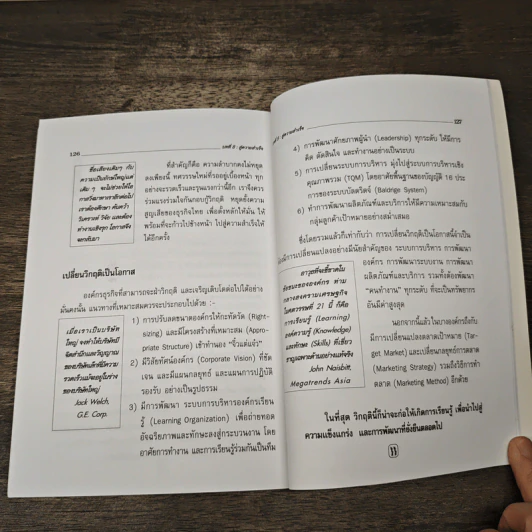 126
บทที่ 5 : สู่ความสำเร็จ
ชื่อเสียงเดิมๆ กับ
ความเป็นยักษ์ใหญ่แต่
เดิม ๆ จะไม่ช่วยให้โอ
กาสวิ่งมาหาเราอีกต่อไป
เราต้องศึกษา ค้นคว้า
วิเคราะห์ วิจัย และต้อง
ทำงานเชิงรุก โอกาสจึง
จะกลับมา
ที่สำคัญก็คือ ความลำบากคงไม่หยุด
ลงเพียงนี้ ทศวรรษใหม่ที่รออยู่เบื้องหน้า ทุก
อย่างจะรวดเร็วและรุนแรงกว่านี้อีก เราจึงควร
ร่วมแรงร่วมใจกันกอบกู้วิกฤติ หยุดยั้งความ
สูญเสียของธุรกิจไทย เพื่อตั้งหลักให้มั่น ให้
พร้อมที่จะก้าวไปข้างหน้า ไปสู่ความสำเร็จให้
ได้อีกครั้ง
เปลี่ยนวิกฤติเป็นโอกาส
องค์กรธุรกิจที่สามารถจะฝ่าวิกฤติ และเจริญเติบโตต่อไปได้อย่าง
มั่นคงนั้น แนวทางที่เหมาะสมควรจะประกอบไปด้วย :-
เมื่อเราเป็นบริษัท
ใหญ่ จงทำให้บริษัทมี
จิตสำนึกและวิญญาณ
ของบริษัทเล็กที่มีความ
รวดเร็วแฝงอยู่ในร่าง
ของบริษัทใหญ่
Jack Welch,
G.E. Corp.
1) การปรับลดขนาดองค์กรให้กะทัดรัด (Right-
sizing) และมีโครงสร้างที่เหมาะสม (Appro-
priate Structure) เข้าทำนอง "จิ๋วแต่แจ๋ว"
2) มีวิสัยทัศน์องค์กร (Corporate Vision) ที่ชัด
เจน และมีแผนกลยุทธ์ และแผนการปฏิบัติ
รองรับ อย่างเป็นรูปธรรม
3) มีการพัฒนา ระบบการบริหารองค์กรเรียน
รู้ (Learning Organization) เพื่อถ่ายทอด
อัจฉริยภาพและทักษะลงสู่กระบวนงาน โดย
อาศัยการทำงาน และการเรียนรู้ร่วมกันเป็นทีม
5 : สู่ความสำเร็จ
127
4) การพัฒนาศักยภาพผู้นำ (Leadership) ทุกระดับ ให้มีการ
คิด ตัดสินใจ และทำงานอย่างเป็นระบบ
5) การเปลี่ยนระบบการบริหาร มุ่งไปสู่ระบบการบริหารเชิง
คุณภาพรวม (TQM) โดยอาศัยพื้นฐานของบัญญัติ 16 ประ
การของระบบบัลดริดจ์ (Baldrige System)
6) ทำการพัฒนาผลิตภัณฑ์และบริการให้มีความเหมาะสมกับ
กลุ่มลูกค้าเป้าหมายอย่างสม่ำเสมอ
ซึ่งโดยรวมแล้วก็เท่ากับว่า การเปลี่ยนวิกฤติเป็นโอกาสนี้จำเป็น
ต้องมีการเปลี่ยนแปลงอย่างมีนัยสำคัญของ ระบบการบริหาร การพัฒนา
องค์กร การพัฒนาระบบงาน การพัฒนา
ผลิตภัณฑ์และบริการ รวมทั้งต้องพัฒนา
"คนทำงาน" ทุกระดับ ที่จะเป็นทรัพยากร
อันมีค่าสูงสุด
อาวุธที่จะชี้ขาดใน
ชัยชนะขององค์กร ท่าม
กลางสงครามเศรษฐกิจ
ในศตวรรษที่ 21 นี้ ก็คือ
การเรียนรู้ (Learning)
องค์ความรู้ (Knowledge)
และทักษะ (Skills) ที่เชี่ยว
ชาญเฉพาะด้านอย่างแท้จริง
John Naisbitt,
Megatrends Asia
นอกจากนี้แล้ว ในบางองค์กรถึงกับ
มีการเปลี่ยนแปลงตลาดเป้าหมาย (Tar-
get Market) และเปลี่ยนกลยุทธ์การตลาด
(Marketing Strategy) รวมถึงวิธีการทำ
ตลาด (Marketing Method) อีกด้วย
ในที่สุด วิกฤตินี้ก็น่าจะก่อให้เกิดการเรียนรู้ เพื่อนำไปสู่
ความแข็งแกร่ง และการพัฒนาที่ยั่งยืนตลอดไป